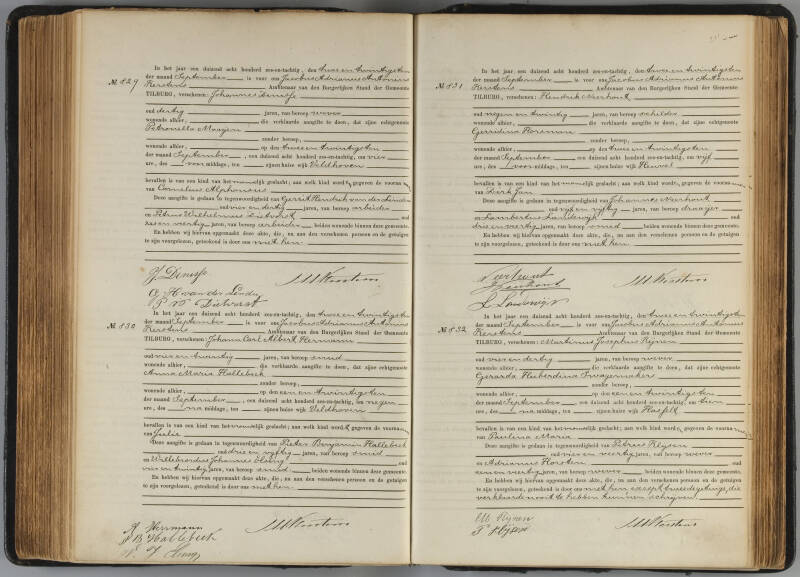 № 829
In het jaar een duizend acht honderd zes-en-tachtig, den twee en twintigsten
der maand September is voor ons Jacobus Adrianus Antonius
Kerstens Ambtenaar van den Burgerlijken Stand der Gemeente
TILBURG, verschenen: Johannes Denisse
oud dertig jaren, van beroep wever
wonende alhier, die verklaarde aangifte te doen, dat zijne echtgenoote
Petronella Maaijen
zonder beroep,
wonende alhier, op den twee en twintigsten
der maand September, een duizend acht honderd zes-en-tachtig, om vier
ure, des voor middags, ten zijnen huize wijk Veldhoven
bevallen is van een kind van het mannelijk geslacht; aan welk kind wordt gegeven de voornamen
van Cornelius Alphonsus
Deze aangifte is gedaan in tegenwoordigheid van Gerrit Hendrik van der Linden
oud vier en dertig jaren, van beroep arbeider
en Petrus Wilhelmus Dietvorst oud
zes en veertig jaren, van beroep arbeider beiden wonende binnen deze gemeente.
En hebben wij hiervan opgemaakt deze akte, die, na aan den verschenen persoon en de getuigen
te zijn voorgelezen, geteekend is door ons met hen
J Denisse
G H van der Linden
P W Dietvorst
№ 830
In het jaar een duizend acht honderd zes-en-tachtig, den twee en twintigsten
der maand September is voor ons Jacobus Adrianus Antonius
Kerstens Ambtenaar van den Burgerlijken Stand der Gemeente
TILBURG, verschenen: Johann Carl Albert Herrmann
oud vier en twintig jaren, van beroep smid
wonende alhier, die verklaarde aangifte te doen, dat zijne echtgenoote
Anna Maria Hallebeek
zonder beroep,
wonende alhier, op den een en twintigsten
der maand September, een duizend acht honderd zes-en-tachtig, om negen
ure, des na middags, ten zijnen huize wijk Veldhoven
bevallen is van een kind van het vrouwelijk geslacht; aan welk kind wordt gegeven de voornaam
van Julie
Deze aangifte is gedaan in tegenwoordigheid van Pieter Benjamin Hallebeek
oud drie en vijftig jaren, van beroep smid
en Willebrordus Johannes Elsing oud
vier en twintig jaren, van beroep smid beiden wonende binnen deze gemeente.
En hebben wij hiervan opgemaakt deze akte, die, na aan den verschenen persoon en de getuigen
te zijn voorgelezen, geteekend is door ons met hen.
A Herrmann
P B Hallebeek
№ 831
In het jaar een duizend acht honderd zes-en-tachtig, den twee en twintigsten
der maand September is voor ons Jacobus Adrianus Antonius
Kerstens Ambtenaar van den Burgerlijken Stand der Gemeente
TILBURG, verschenen: Hendrik Neerhout
oud negen en twintig jaren, van beroep schilder
wonende alhier, die verklaarde aangifte te doen, dat zijne echtgenoote
Gerridina Horeman
zonder beroep,
wonende alhier, op den twee en twintigsten
der maand September, een duizend acht honderd zes-en-tachtig, om vijf
ure, des voor middags, ten zijnen huize wijk Heuvel
bevallen is van een kind van het mannelijk geslacht; aan welk kind wordt gegeven de voornamen
van Dirk Jan
Deze aangifte is gedaan in tegenwoordigheid van Johannes Neerhout
oud vijf en vijftig jaren, van beroep draaijer
en Lambertus Landewijk oud
drie en veertig jaren, van beroep smid beiden wonende binnen deze gemeente.
En hebben wij hiervan opgemaakt deze akte, die, na aan den verschenen persoon en de getuigen
te zijn voorgelezen, geteekend is door ons met hen
Neerhout
Neerhout
L Landewijk
№ 832
In het jaar een duizend acht honderd zes-en-tachtig, den twee en twintigsten
der maand September is voor ons Jacobus Adrianus Antonius
Kerstens Ambtenaar van den Burgerlijken Stand der Gemeente
TILBURG, verschenen: Martinus Josephus Rijnen
oud vier en dertig jaren, van beroep wever
wonende alhier, die verklaarde aangifte te doen, dat zijne echtgenoote
Gerarda Huberdina Swagemaker
zonder beroep,
wonende alhier, op den een en twintigsten
der maand September, een duizend acht honderd zes-en-tachtig, om tien
ure, des na middags, ten zijnen huize wijk Hasselt
bevallen is van een kind van het vrouwelijk geslacht; aan welk kind wordt gegeven de voornamen
van Paulina Maria
Deze aangifte is gedaan in tegenwoordigheid van Petrus Rijnen
oud vier en veertig jaren, van beroep wever
en Adrianus Horsten oud
een en veertig jaren, van beroep wever beiden wonende binnen deze gemeente.
En hebben wij hiervan opgemaakt deze akte, die, na aan den verschenen persoon en de getuigen
te zijn voorgelezen, geteekend is door ons met hen except tweede getuige, die
verklaarde nooit te hebben kunnen schrijven
M Rijnen
P Rijnen